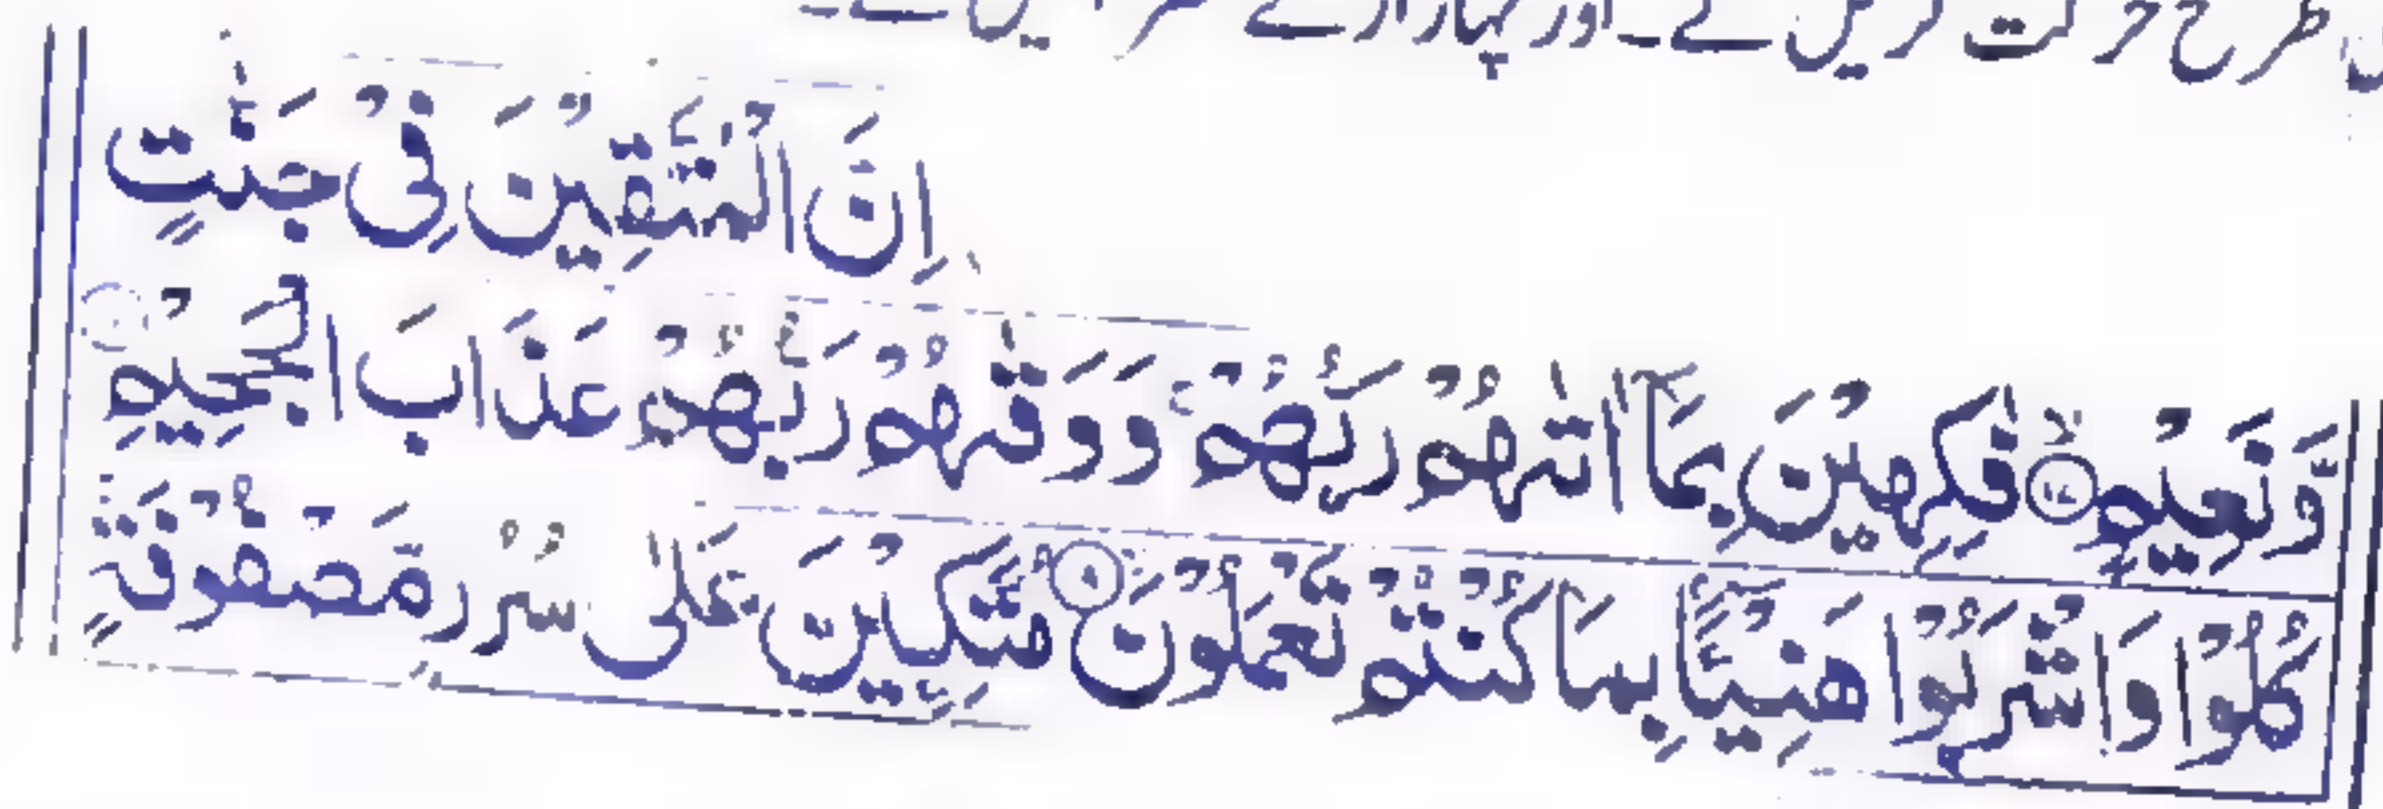 طرح حرکت کریں گے۔ اور پہاڑ اڑے
اِنَّ الْمُتَّقِيْنَ فِىْ جَنّٰتٍ
وَّنَعِيْمٍ ۙ﴿۱۷﴾ فٰكِهِيْنَ بِمَآ اٰتٰٮهُمْ رَبُّهُمْ ۚ وَوَقٰٮهُمْ رَبُّهُمْ عَذَابَ الْجَحِيْمِ
كُلُوْا وَاشْرَبُوْا هَنِيْٓـــًٔا بِمَا كُنْتُمْ تَعْمَلُوْنَ مُتَّكِـِٕيْنَ عَلٰى سُرُرٍ مَّصْفُوْفَةٍ